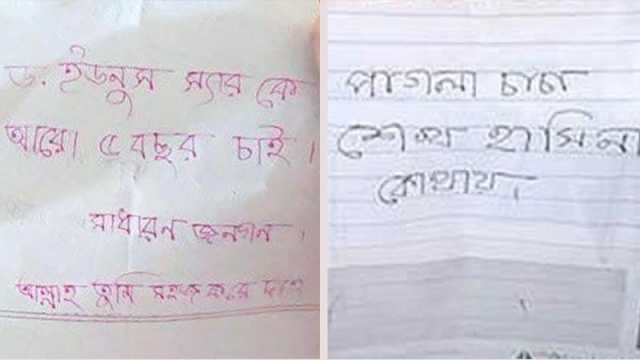 ড. ইউনুস স্যার কে
আরো ৫ বছর চাই।
সাধারন জনগন।
আল্লাহ তুমি সহজ করে দাও
পাগলা চাচা
শেখ হাসিনা
কোথায়।